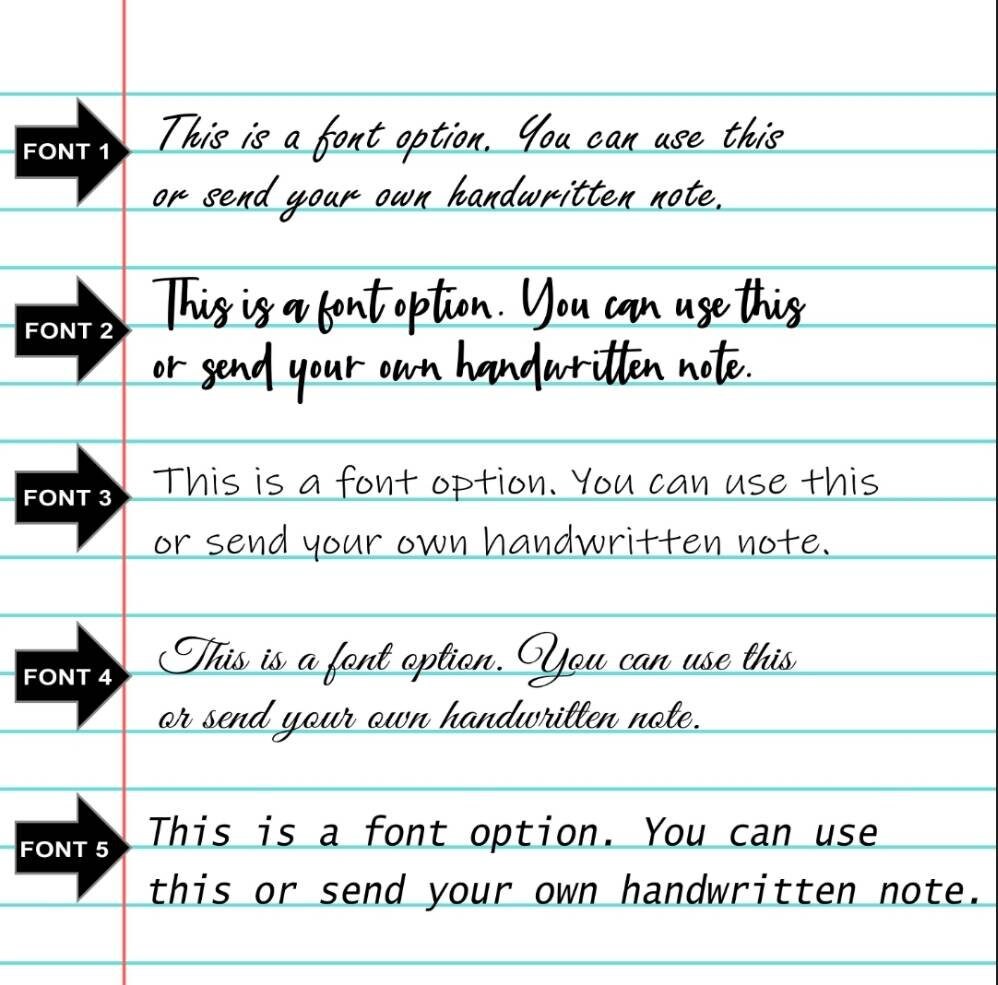 FONT 1
This is a font option. You can use this
or send your own handwritten note.
FONT 2
This is a font option. You can use this
or send your own handwritten note.
FONT 3
This is a font option. You can use this
or send your own handwritten note.
FONT 4
This is a font option. You can use this
or send your own handwritten note.
FONT 5
This is a font option. You can use
this or send your own handwritten note.